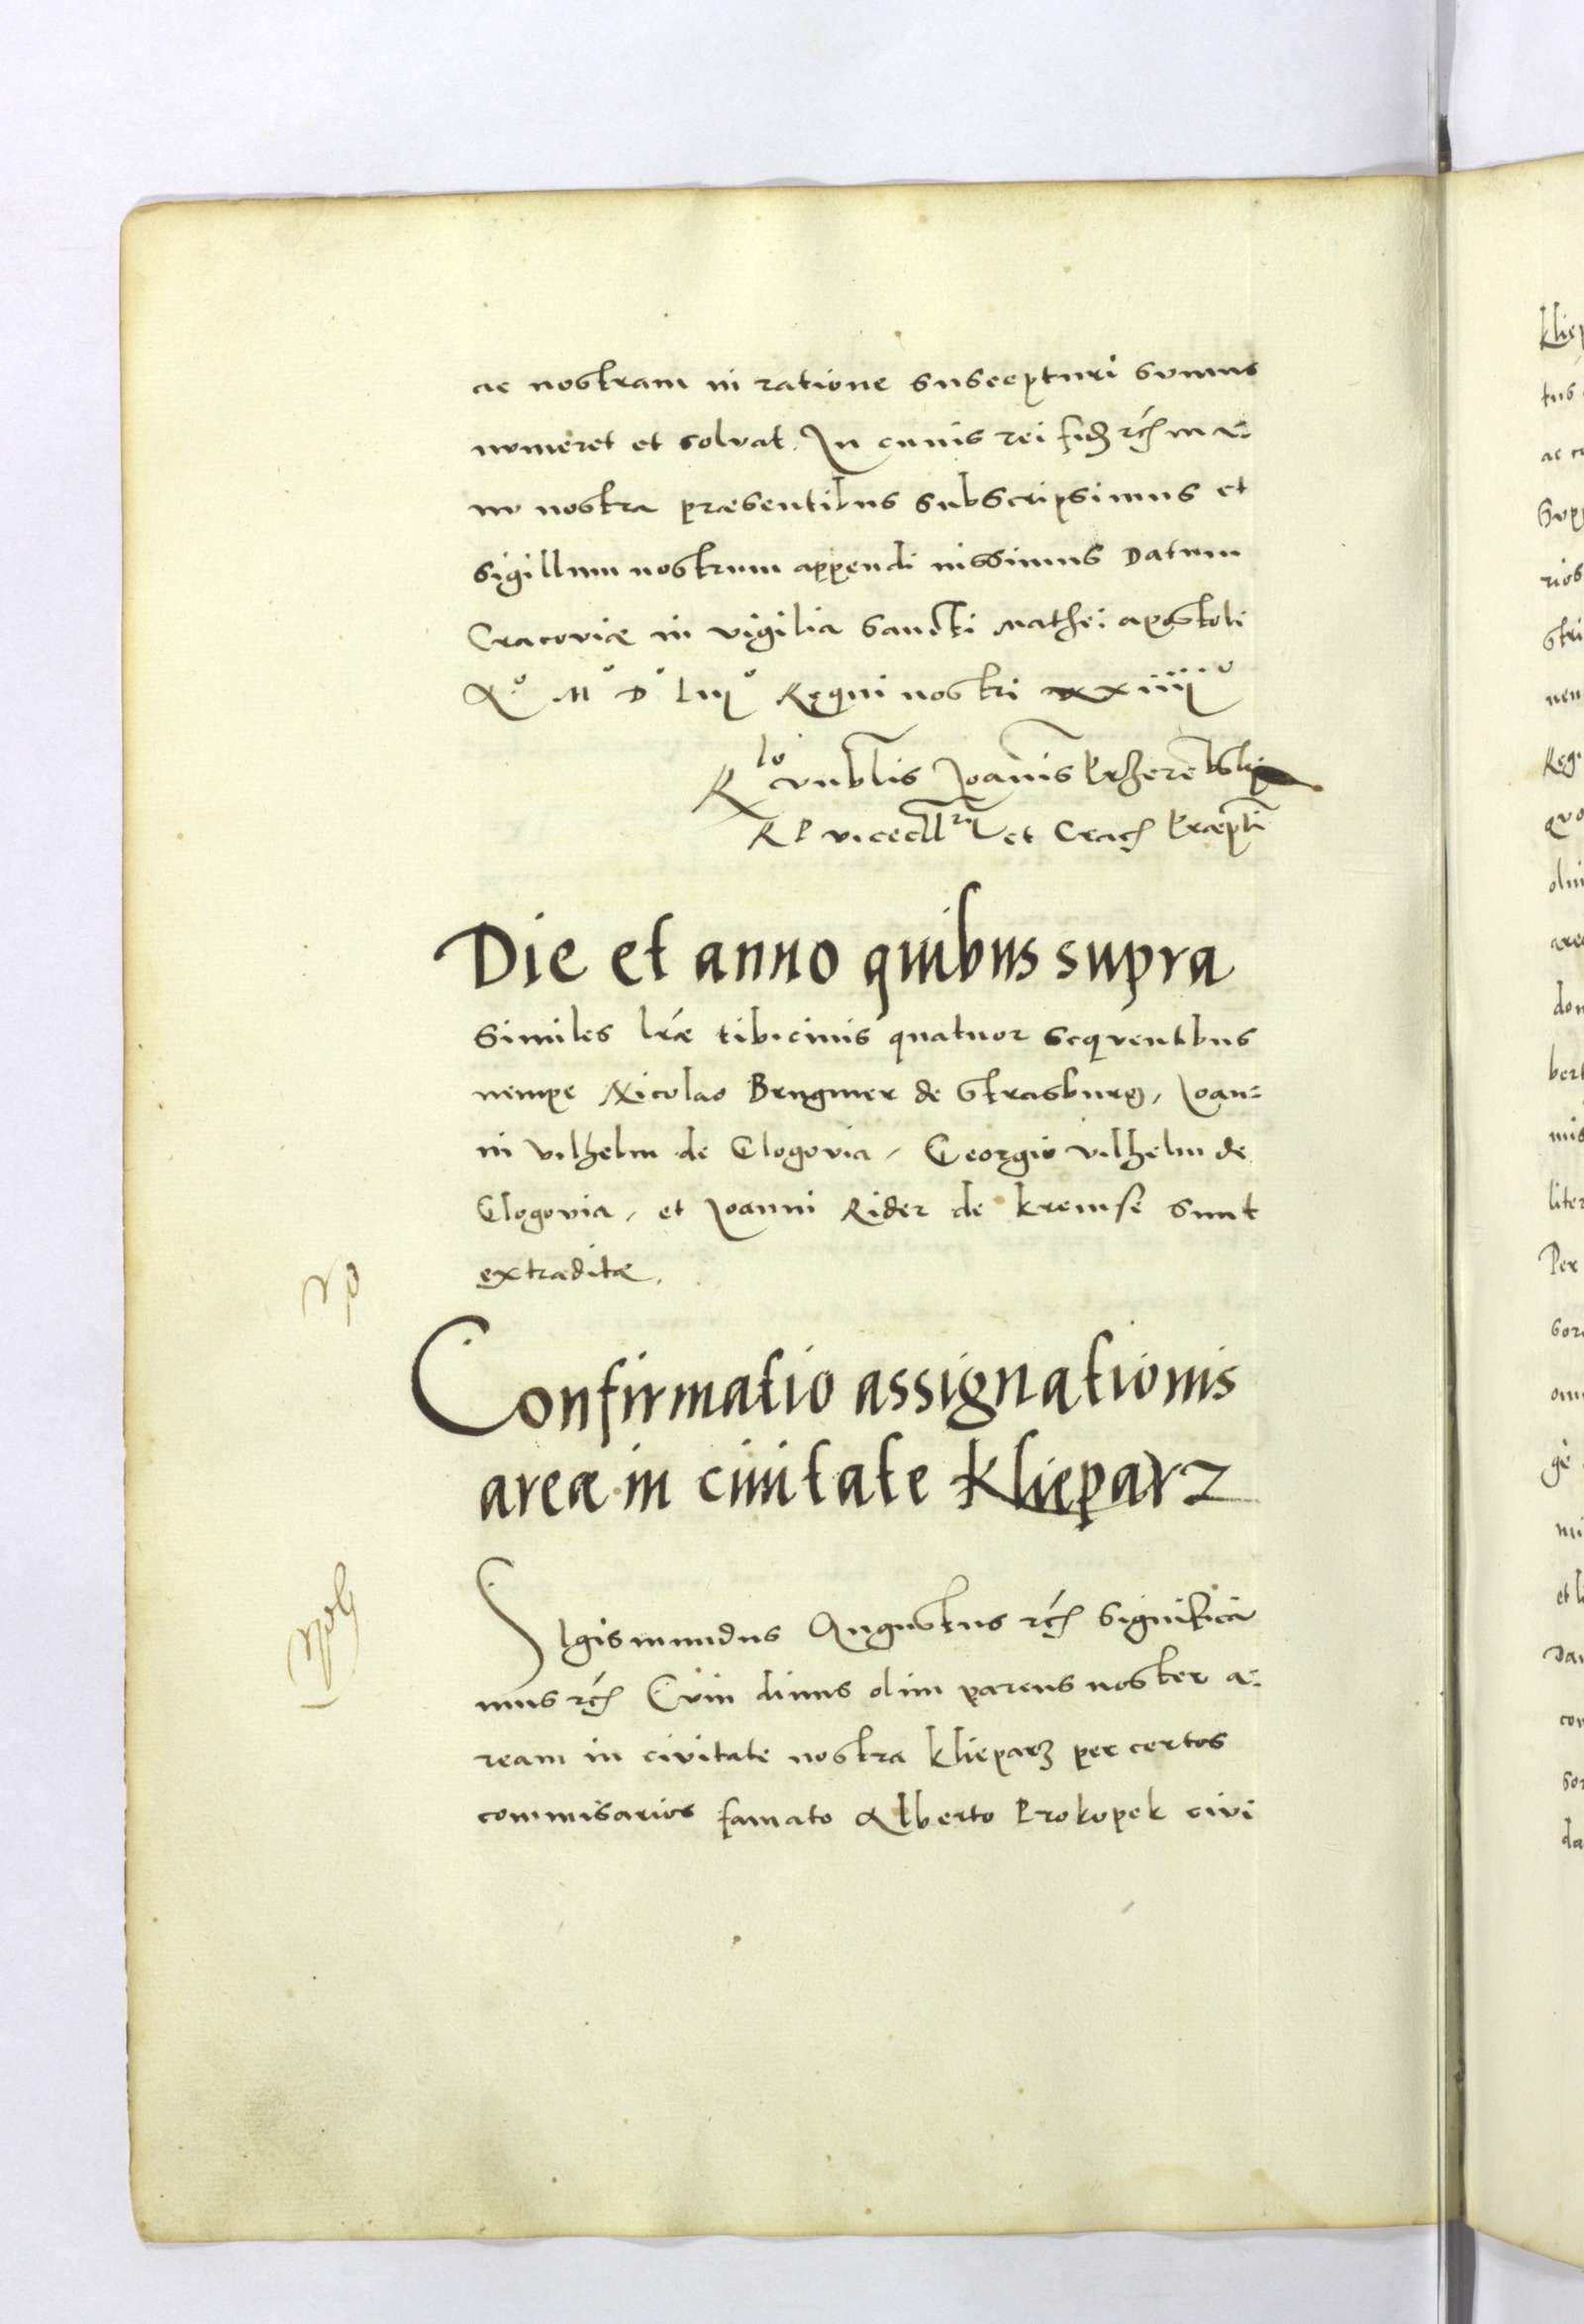 ac nostram in ratione suscepturi sumus
numeret et solvat. In cuius rei fidē rc̄ ma-
nu nostra præsentibus subscripsimus et
sigillum nostrum appendi iussimus Datum
Cracoviæ in vigilia Sancti Mathei apostoli
Aº Mº Dº Liijº Regni nostri xxiiijº
Rlo vnblis Joannis Przerebsky
R P vicecll et Crach Præpti
Die et anno quibus supra
Similes lr̄æ tibicinis quatuor sequentibus
nempe Nicolao Brugmer de Strasburg, Joan=
ni Vilhelm de Glogovia, Georgio Vilhelm de
Glogovia, et Joanni Rider de Kremse sunt
extraditæ.
Confirmatio assignationis
areæ in ciuitate Klieparz
Sigismundus Augustus rc̄ Significa
mus rc̄ Cum diuus olim parens noster a-
ream in civitate nostra Klieparz per certos
commisarios famato Alberto Prokopek civi
Kliep
tus
ac c
Supp
rios
stri
nen
Reg
quo
olim
are
don
bert
mis
liter
Per
sor
om
gē
ni
et l
Da
con
sor
da